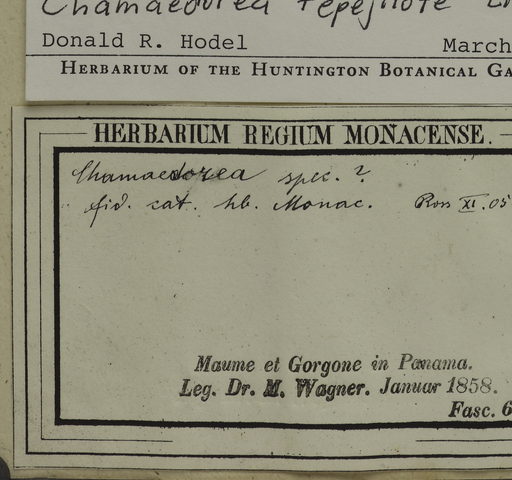 Chamaedorea tepejilote
Donald R. Hodel March
HERBARIUM OF THE HUNTINGTON BOTANICAL GA
HERBARIUM REGIUM MONACENSE.
Chamaedorea spec. ?
fid. cat. hb. Monac. Ross XI. 05
Maume et Gorgone in Panama.
Leg. Dr. M. Wagner. Januar 1858.
Fasc. 6